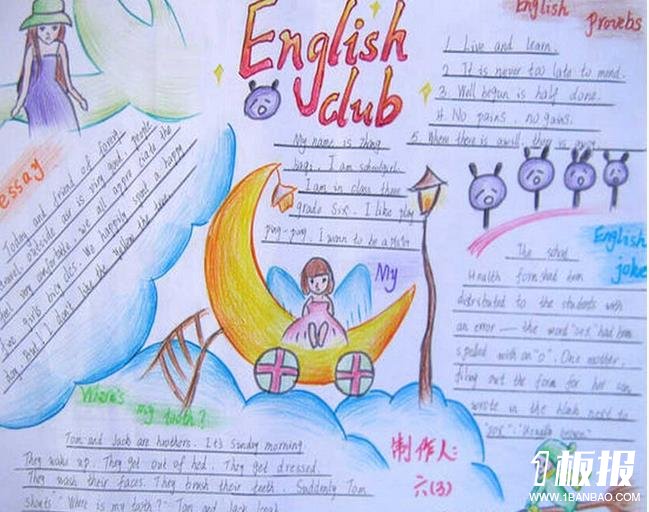 English club
English Proverbs
1. Live and learn.
2. It is never too late to mend.
3. Well begun is half done.
4. No pains, no gains.
5. Where there is a will, there is
My name is zhang
baqi. I am schoolgirl.
I am in class three
grade six. I like play
ping-pong. I wann to be a
My
essay
Today and friend of
travel, outside air is very and people
feel very comfortable, we all appre ciate the
two girls We happily spend a happy
day. But! I don't like the
English joke
The school
Health form had been
distributed to the students with
an error — the word "sex" had been
spelled with an "o". One mother,
filling out the form for her son
wrote in the blank next to
"sox": "Usually brown"
Where's my tooth?
Tom and Jack are brothers. It's sunday morning.
They wake up. They get out of bed. They get dressed.
They wash their faces. They brush their teeth. Suddenly Tom
shouts "Where is my tooth?" Tom and Jack
制作人:
六(3)
1板报
WWW.1BANBAO.COM